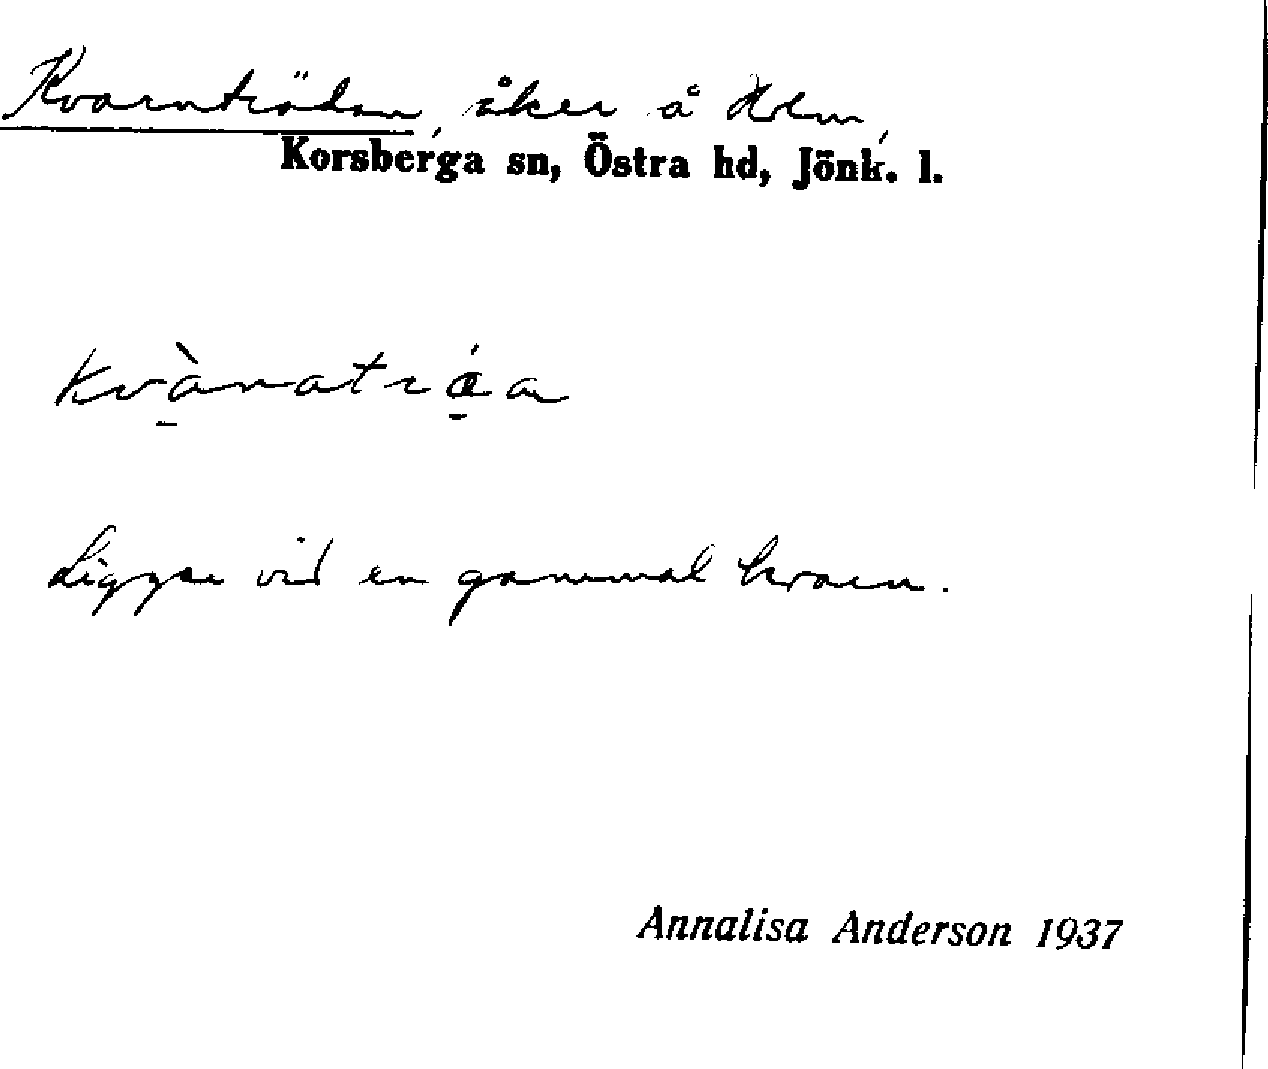 Kvarnträdan, åker å Holm,
Korsberga sn, Östra hd, Jönk. l.
Ligger vid en gammal kvarn.
Annalisa Anderson 1937